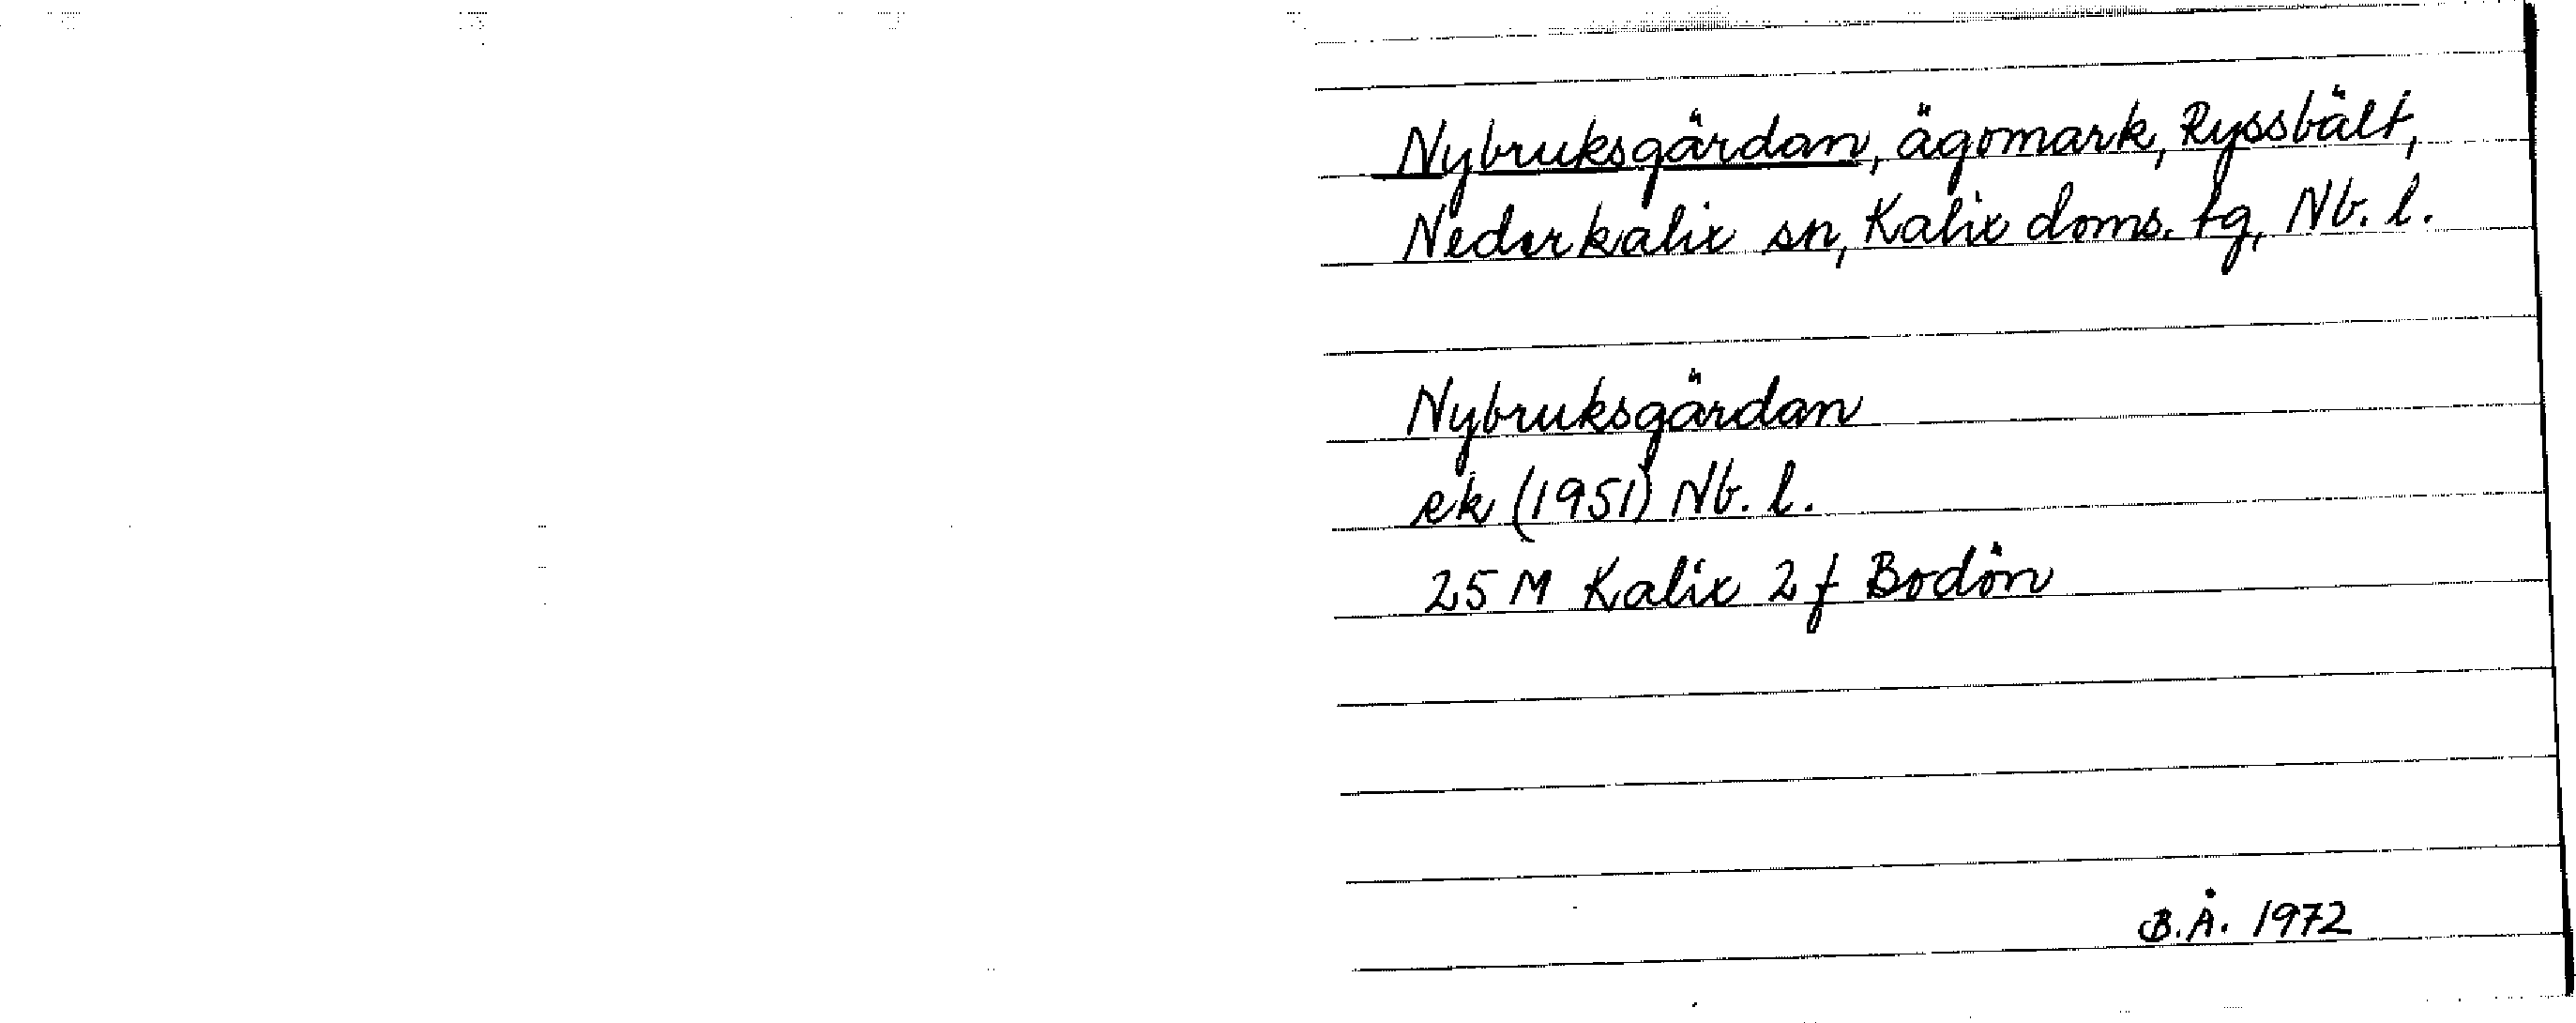 Nybruksgärdan, ägomark, Ryssbält,
Nederkalix sn, Kalix doms. tg, Nb. l.
Nybruksgärdan
ek (1951) Nb. l.
25 M Kalix 2 f Bodön
B.Å. 1972